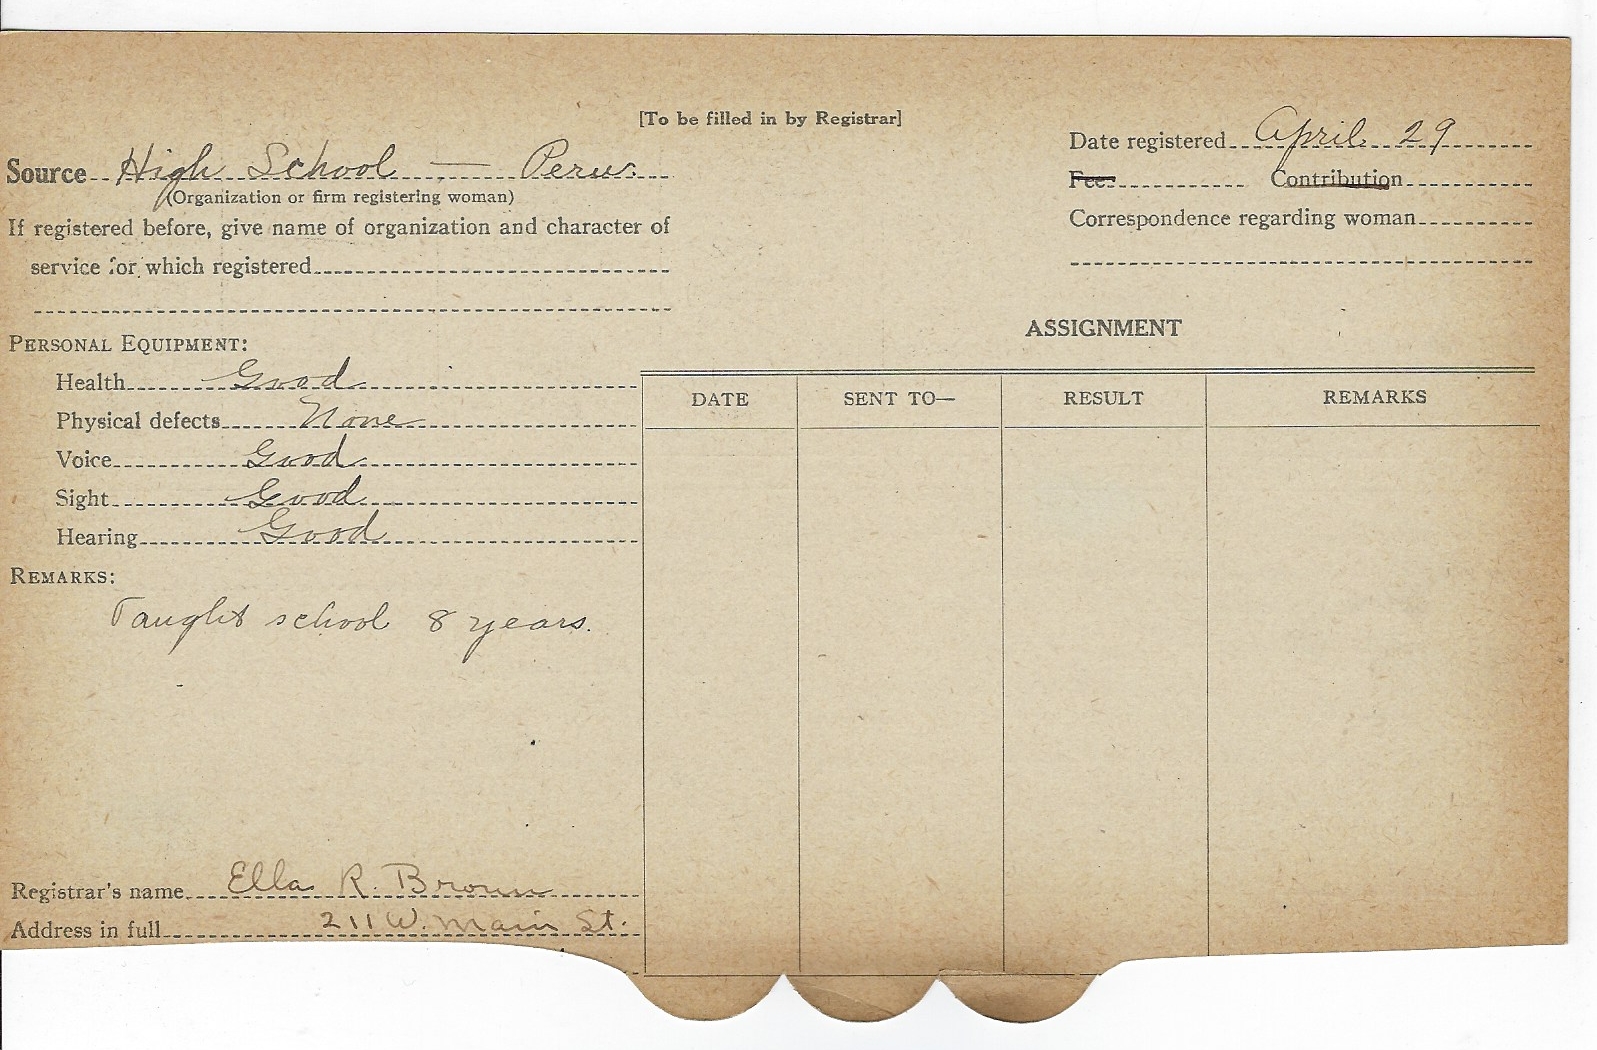 [To be filled in by Registrar]
Date registered April 29
Source High School — Peru.
(Organization or firm registering woman)
Fee Contribution
If registered before, give name of organization and character of
service for which registered
Correspondence regarding woman
PERSONAL EQUIPMENT:
Health Good
Physical defects None
Voice Good
Sight Good
Hearing Good
REMARKS:
Taught school 8 years.
Registrar's name Ella R. Brown
Address in full 211 W. Main St.
ASSIGNMENT
DATE SENT TO— RESULT REMARKS